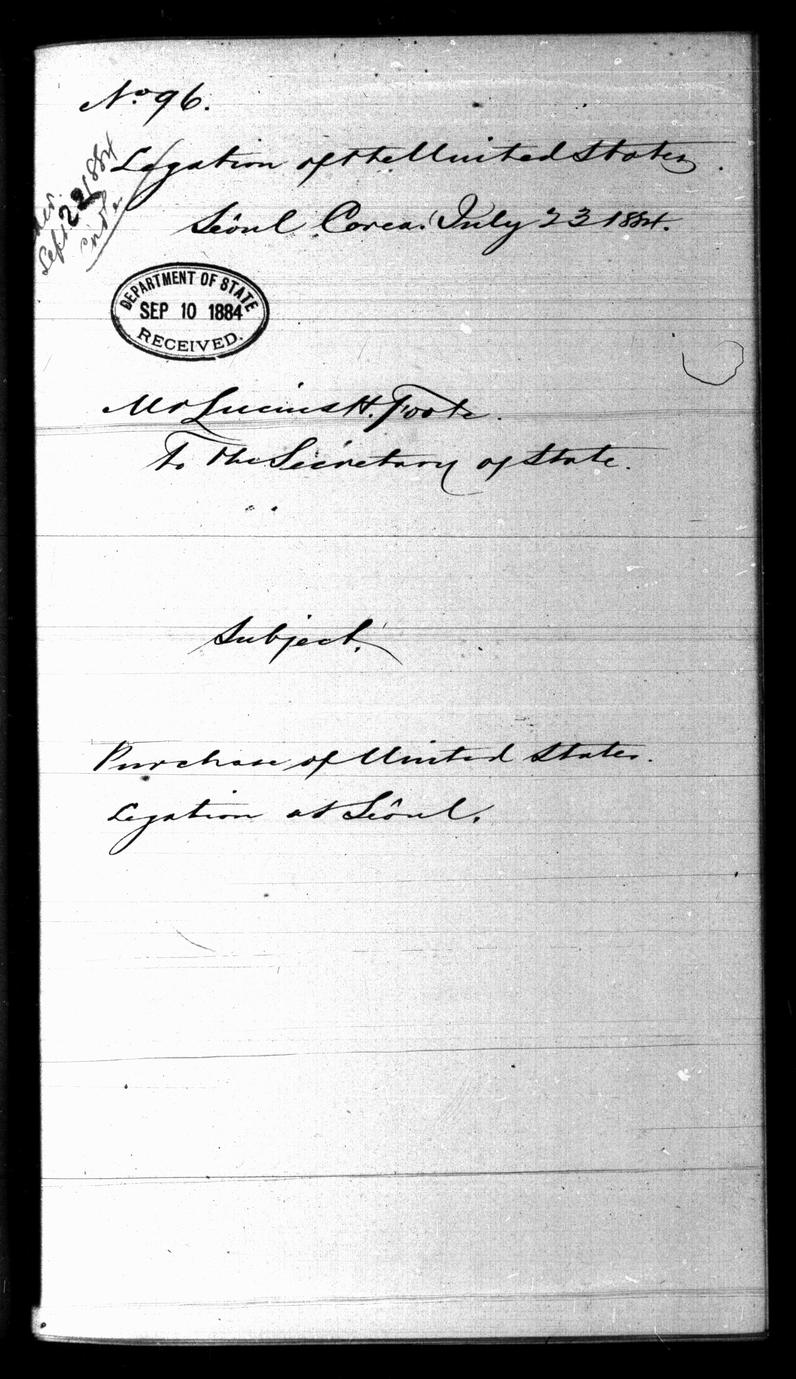 No 96.
Legation of the United States.
Sêoul Corea. July 23 1884.
Sept 22 1884
DEPARTMENT OF STATE
SEP 10 1884
RECEIVED.
Mr Lucius H. Foote.
To the Secretary of State.
Subject.
Purchase of United States.
Legation at Sêoul.